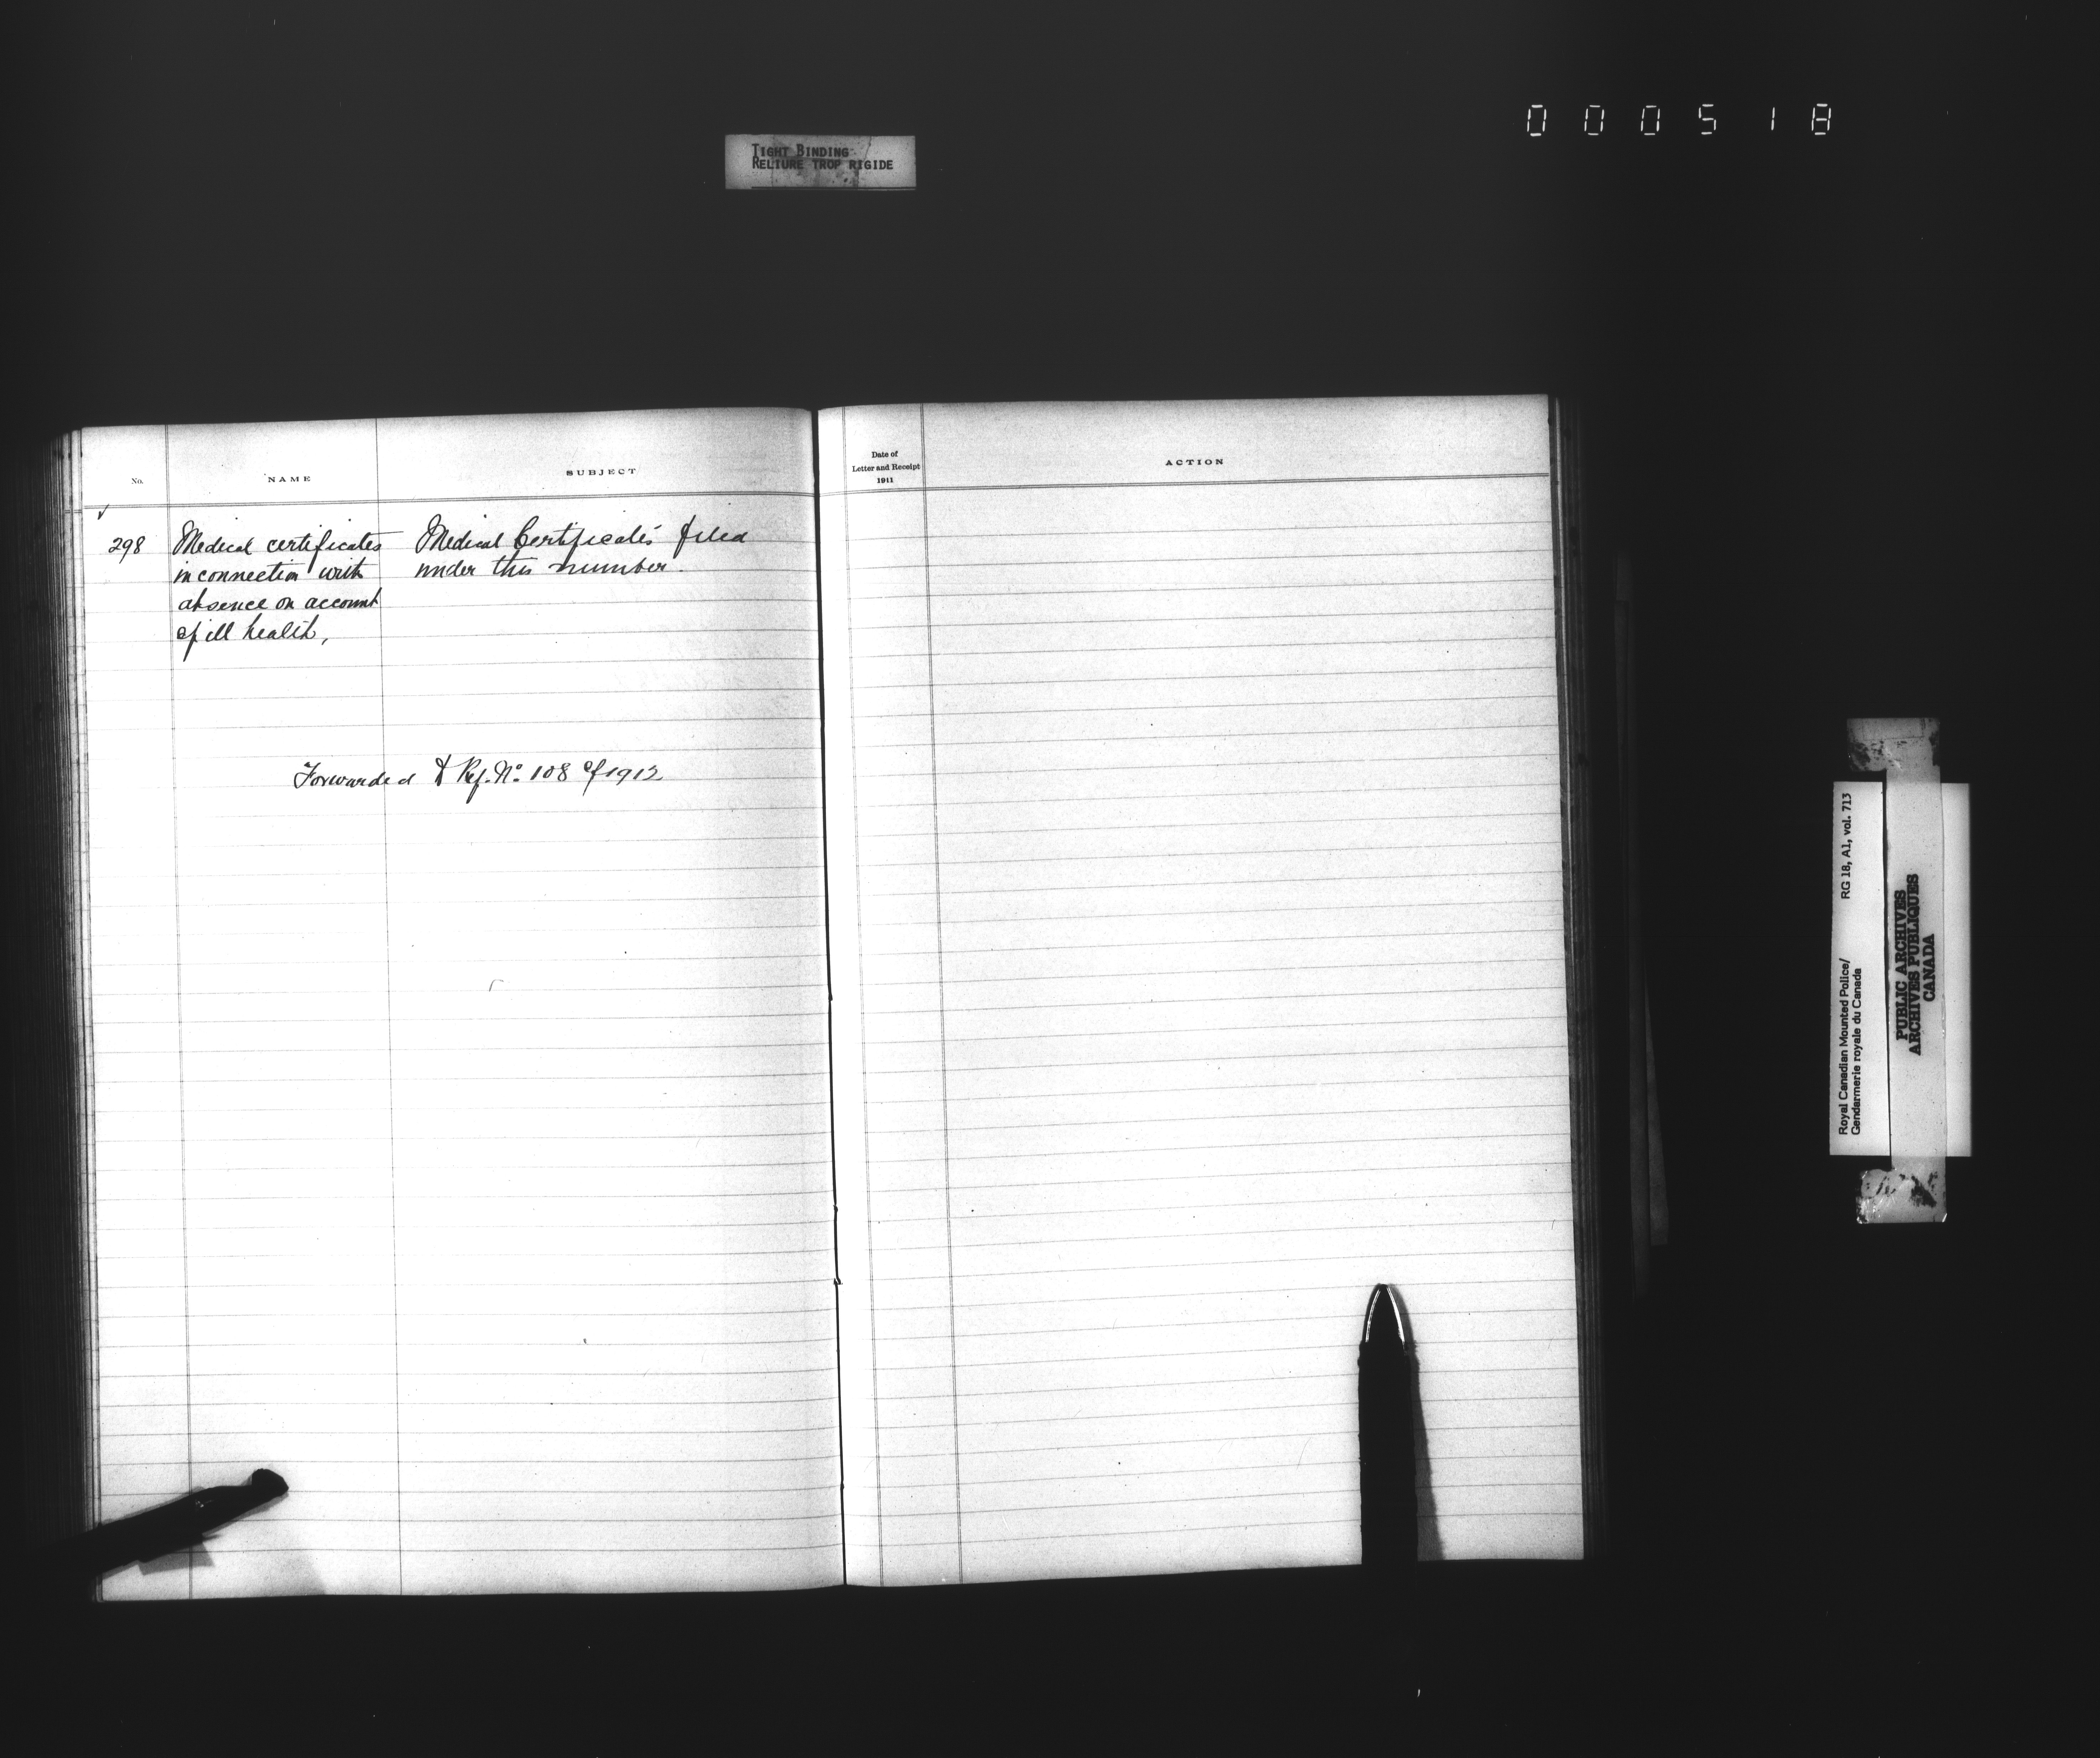 000518
TIGHT BINDING
RELIURE TROP RIGIDE
No.
NAME
SUBJECT
Date of
Letter and Receipt
1911
ACTION
298 Medical certificates Medical Certificates filed
in connection with under this number.
absence on account
of ill health,
Forwarded to Ref. No. 108 of 1912
Royal Canadian Mounted Police/ RG 18, A1, vol. 713
Gendarmerie royale du Canada
PUBLIC ARCHIVES
ARCHIVES PUBLIQUES
CANADA